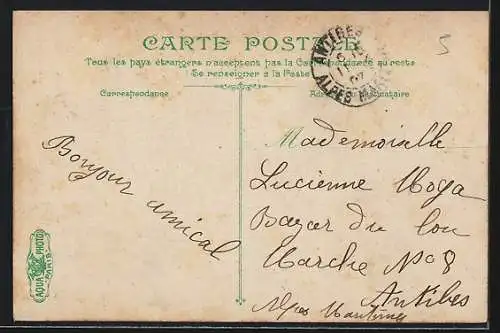 CARTE POSTALE
Tous les pays étrangers n'acceptent pas la Correspondance au recto
Se renseigner à la Poste
Correspondance
ANTIBES
ALPES
Bonjour amical
Mademoiselle
Lucienne Moga
Bazar du Cou
Marche No 8
Antibes
Alpes Maritimes
AQUA PHOTO
PARIS
5